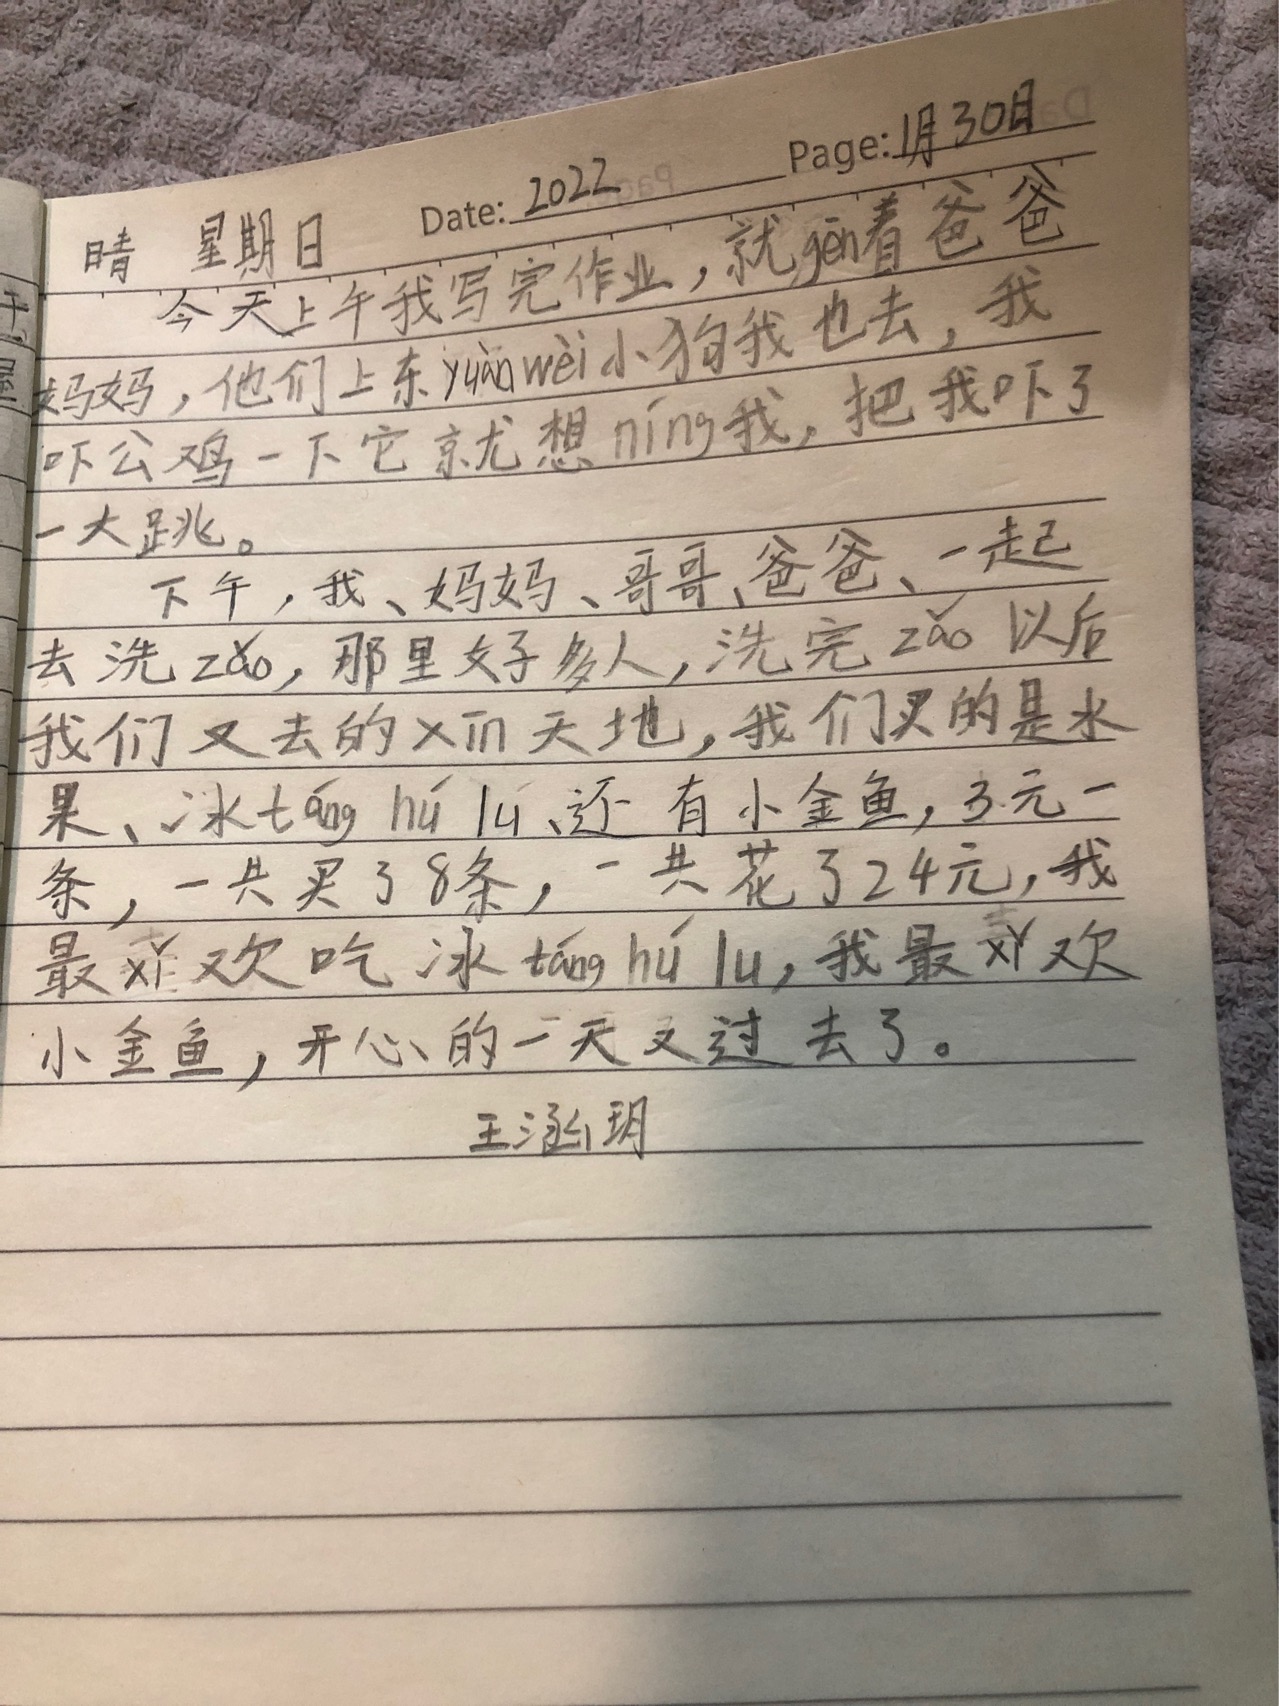 Date: 2022 Page: 1月30日
晴 星期日
今天上午我写完作业，就gēn着爸爸
妈妈，他们上东yuàn wèi小狗我也去，我
吓公鸡一下它就想níng我，把我吓了
一大跳。
下午，我、妈妈、哥哥、爸爸、一起
去洗zǎo，那里好多人，洗完zǎo以后
我们又去的xīn天地，我们买的是水
果、冰táng hú lu、还有小金鱼，3元一
条，一共买了8条，一共花了24元，我
最xǐ欢吃冰táng hú lu，我最xǐ欢
小金鱼，开心的一天又过去了。
王涵玥